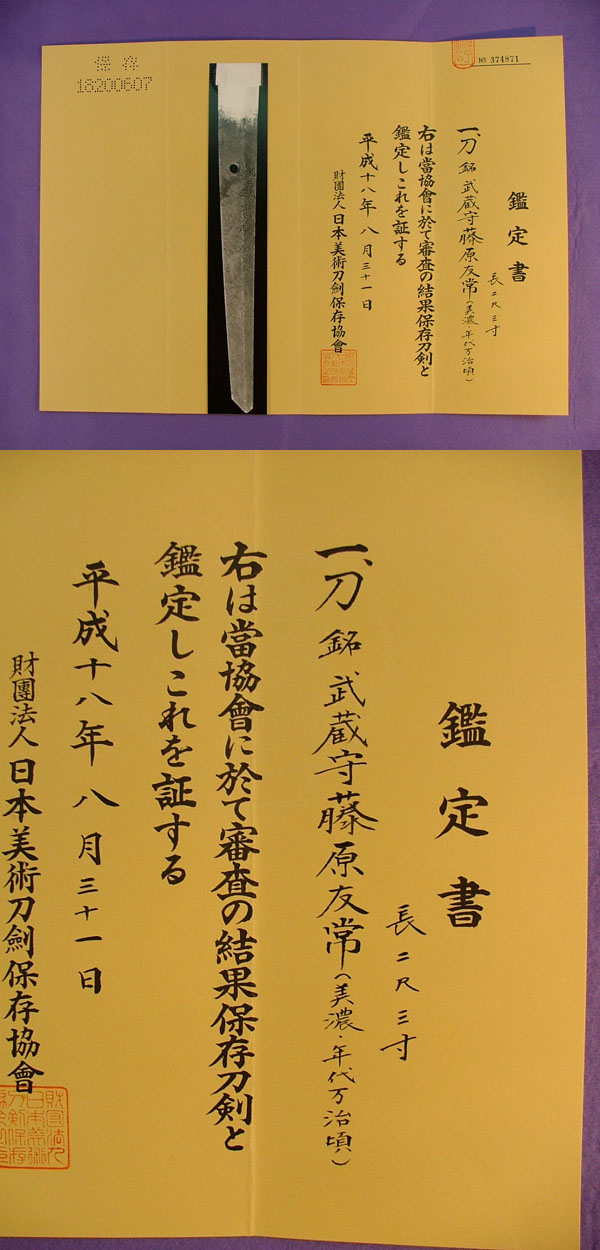 保存
18200607
№ 374871
鑑定書
長二尺三寸
一、刀 銘 武蔵守藤原友常(美濃・年代万治頃)
右は當協會に於て審査の結果保存刀剣と
鑑定しこれを証する
平成十八年八月三十一日
財團法人日本美術刀劍保存協會
鑑定書
長二尺三寸
一、刀 銘 武蔵守藤原友常(美濃・年代万治頃)
右は當協會に於て審査の結果保存刀剣と
鑑定しこれを証する
平成十八年八月三十一日
財團法人日本美術刀劍保存協會